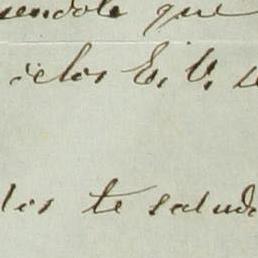 endole que
ielos E. U.
los te salud